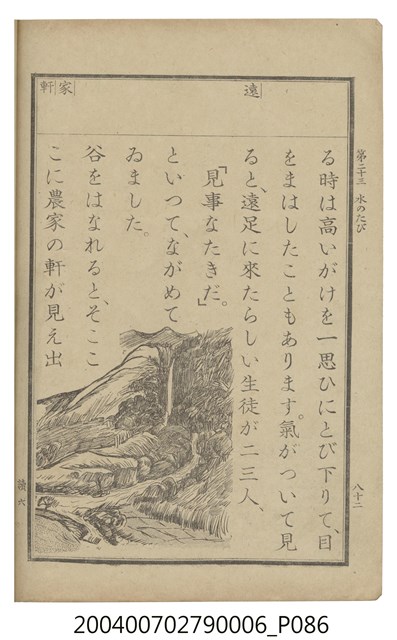 第二十三 水のたび
八十二
遠
家
軒
る時は高いがけを一思ひにとび下りて、目
をまはしたこともあります。氣がついて見
ると、遠足に來たらしい生徒が二三人、
「見事なたきだ。」
といつて、ながめて
ゐました。
谷をはなれると、そここ
こに農家の軒が見え出
讀六
200400702790006_P086